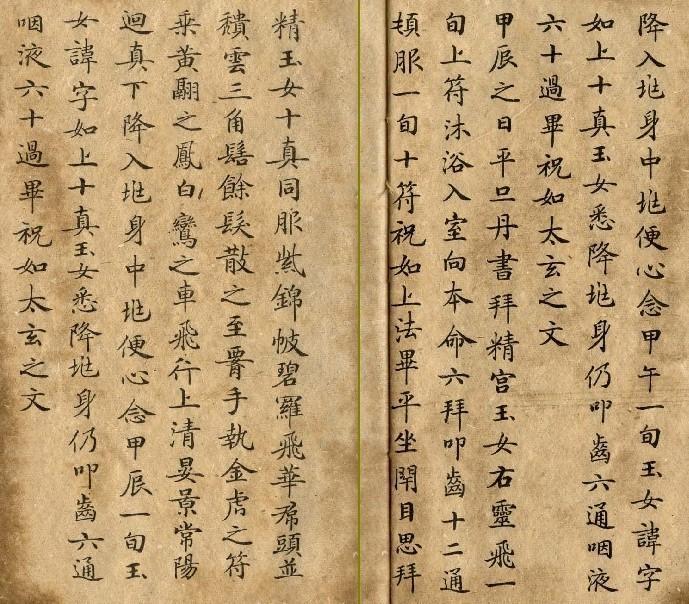 降入兆身中兆便心念甲午一旬玉女諱字
如上十真玉女悉降兆身仍叩齒六通咽液
六十過畢祝如太玄之文
甲辰之日平旦丹書拜精宮玉女右靈飛一
旬上符沐浴入室向本命六拜叩齒十二通
頓服一旬十符祝如上法畢平坐閇目思拜
精玉女十真同服紫錦帔碧羅飛華帬頭並
穨雲三角髻餘髮散之至腰手執金虎之符
乘黃翮之鳳白鸞之車飛行上清晏景常陽
迴真下降入兆身中兆便心念甲辰一旬玉
女諱字如上十真玉女悉降兆身仍叩齒六通
咽液六十過畢祝如太玄之文